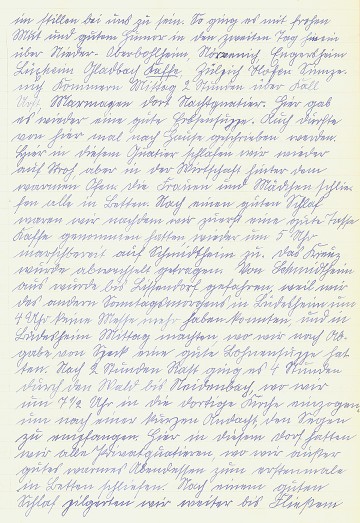 im stillen bei uns zu sein. So ging es mit frohen
Mut und guten Humor in den zweiten Tag hinein
über Nieder- Oberbohlheim, Nörvenich, Eggersheim
Lüxheim Gladbach Kaffe Zülpich Hofen Sinze-
nich Kommern Mittag 2 Stunden über Kall
Urft Marmagen dort Nachtquatier. Hier gab
es wieder eine gute Erbsensuppe. Auch durfte
von hier mal nach Hause geschrieben werden.
Hier in diesem Quatier schlafen wir wieder
auf Stroh aber in der Wirtschaft hinter dem
warmen Ofen die Frauen und Mädchen schlie-
fen alle in Betten. Nach einen guten Schlaf
waren wir nachdem wir zuerst eine gute Tasse
Kaffe genommen hatten wieder um 5 Uhr
marschbereit auf Schmidtheim zu. Das Kreuz
wurde abwechselt getragen. Von Schmidtheim
aus wurde bis Lissendorf gefahren, weil wir
des andern Sonntagsmorgens in Büdesheim um
4 Uhr keine Messe mehr haben konnten, und in
Büdesheim Mittag machten, wo wir nach Ab-
gabe von Speck eine gute Bohnensuppe hat
ten. Nach 2 Stunden Rast ging es 4 Stunden
durch den Wald bis Neidenbach, wo wir
um 7½ Uhr in die dortige Kirche einzogen
um nach einer kurzen Andacht, den Segen
zu empfangen. Hier in diesem Dorf hatten
wir alle Privatquatieren, wo wir außer
gutes warmes Abendessen zum erstenmale
in Betten schliefen. Nach einem guten
Schlaf pilgerten wir weiter bis Fließem